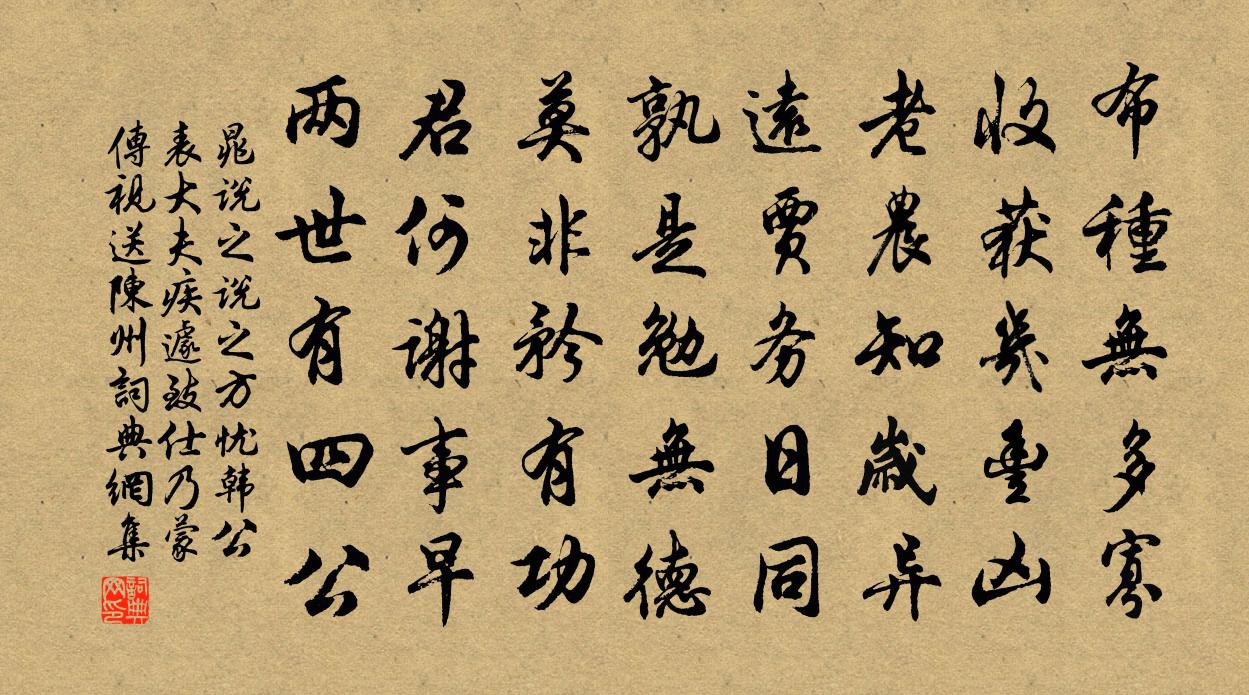 布種無多寡
收获岁豐凶
老農知歲异
遠賈务日同
孰是勉無德
莫非矜有功
君何谢事早
两世有四公
晁说之说之方忧韩公
表大夫疾遽致仕乃蒙
傳視送陳州詞典網集
詞典网印